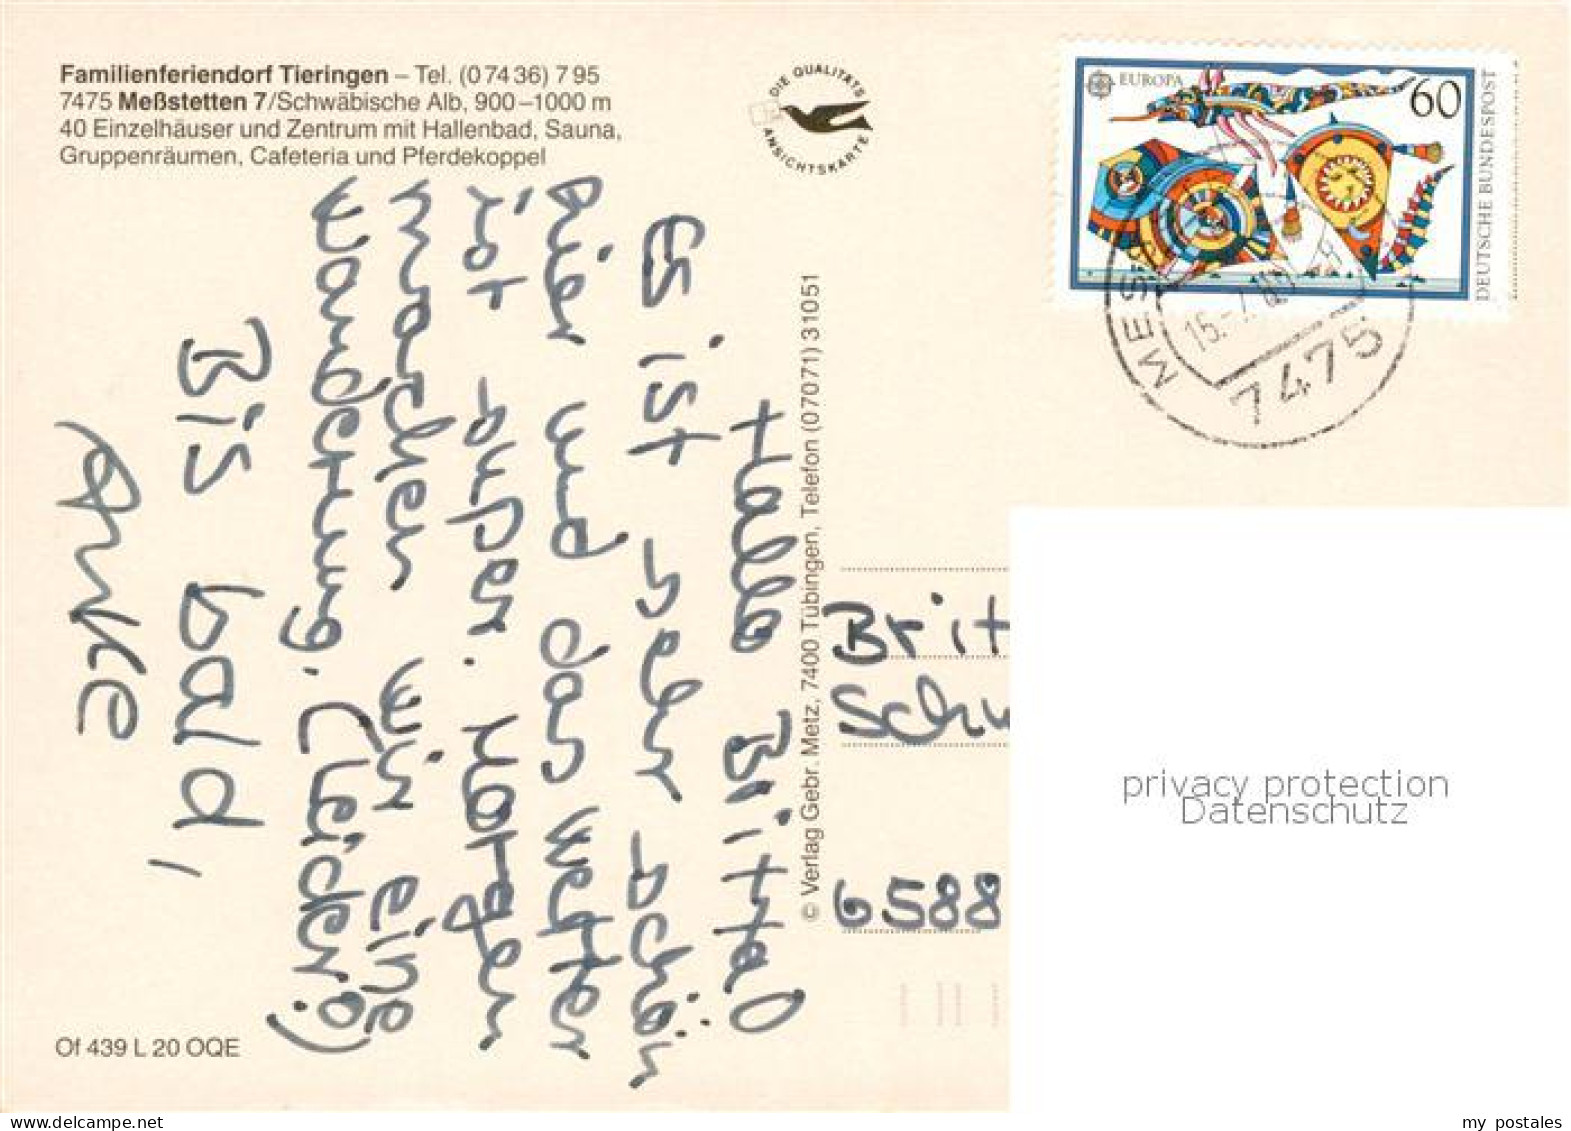 Familienferiendorf Tieringen – Tel. (0 74 36) 7 95
7475 Meßstetten 7/Schwäbische Alb, 900–1000 m
40 Einzelhäuser und Zentrum mit Hallenbad, Sauna,
Gruppenräumen, Cafeteria und Pferdekoppel
DIE QUALITÄTS
ANSICHTSKARTE
EUROPA
60
DEUTSCHE BUNDESPOST
15.-7.
7475
Hallo Britta!
Es ist sehr schön
hier und das Wetter
ist super. Morgen
machen wir eine
Wanderung. (Leider!)
Bis bald,
Anke
© Verlag Gebr. Metz, 7400 Tübingen, Telefon (0 70 71) 3 10 51
Brit
Schw
6588
privacy protection
Datenschutz
Of 439 L 20 OQE
my postales